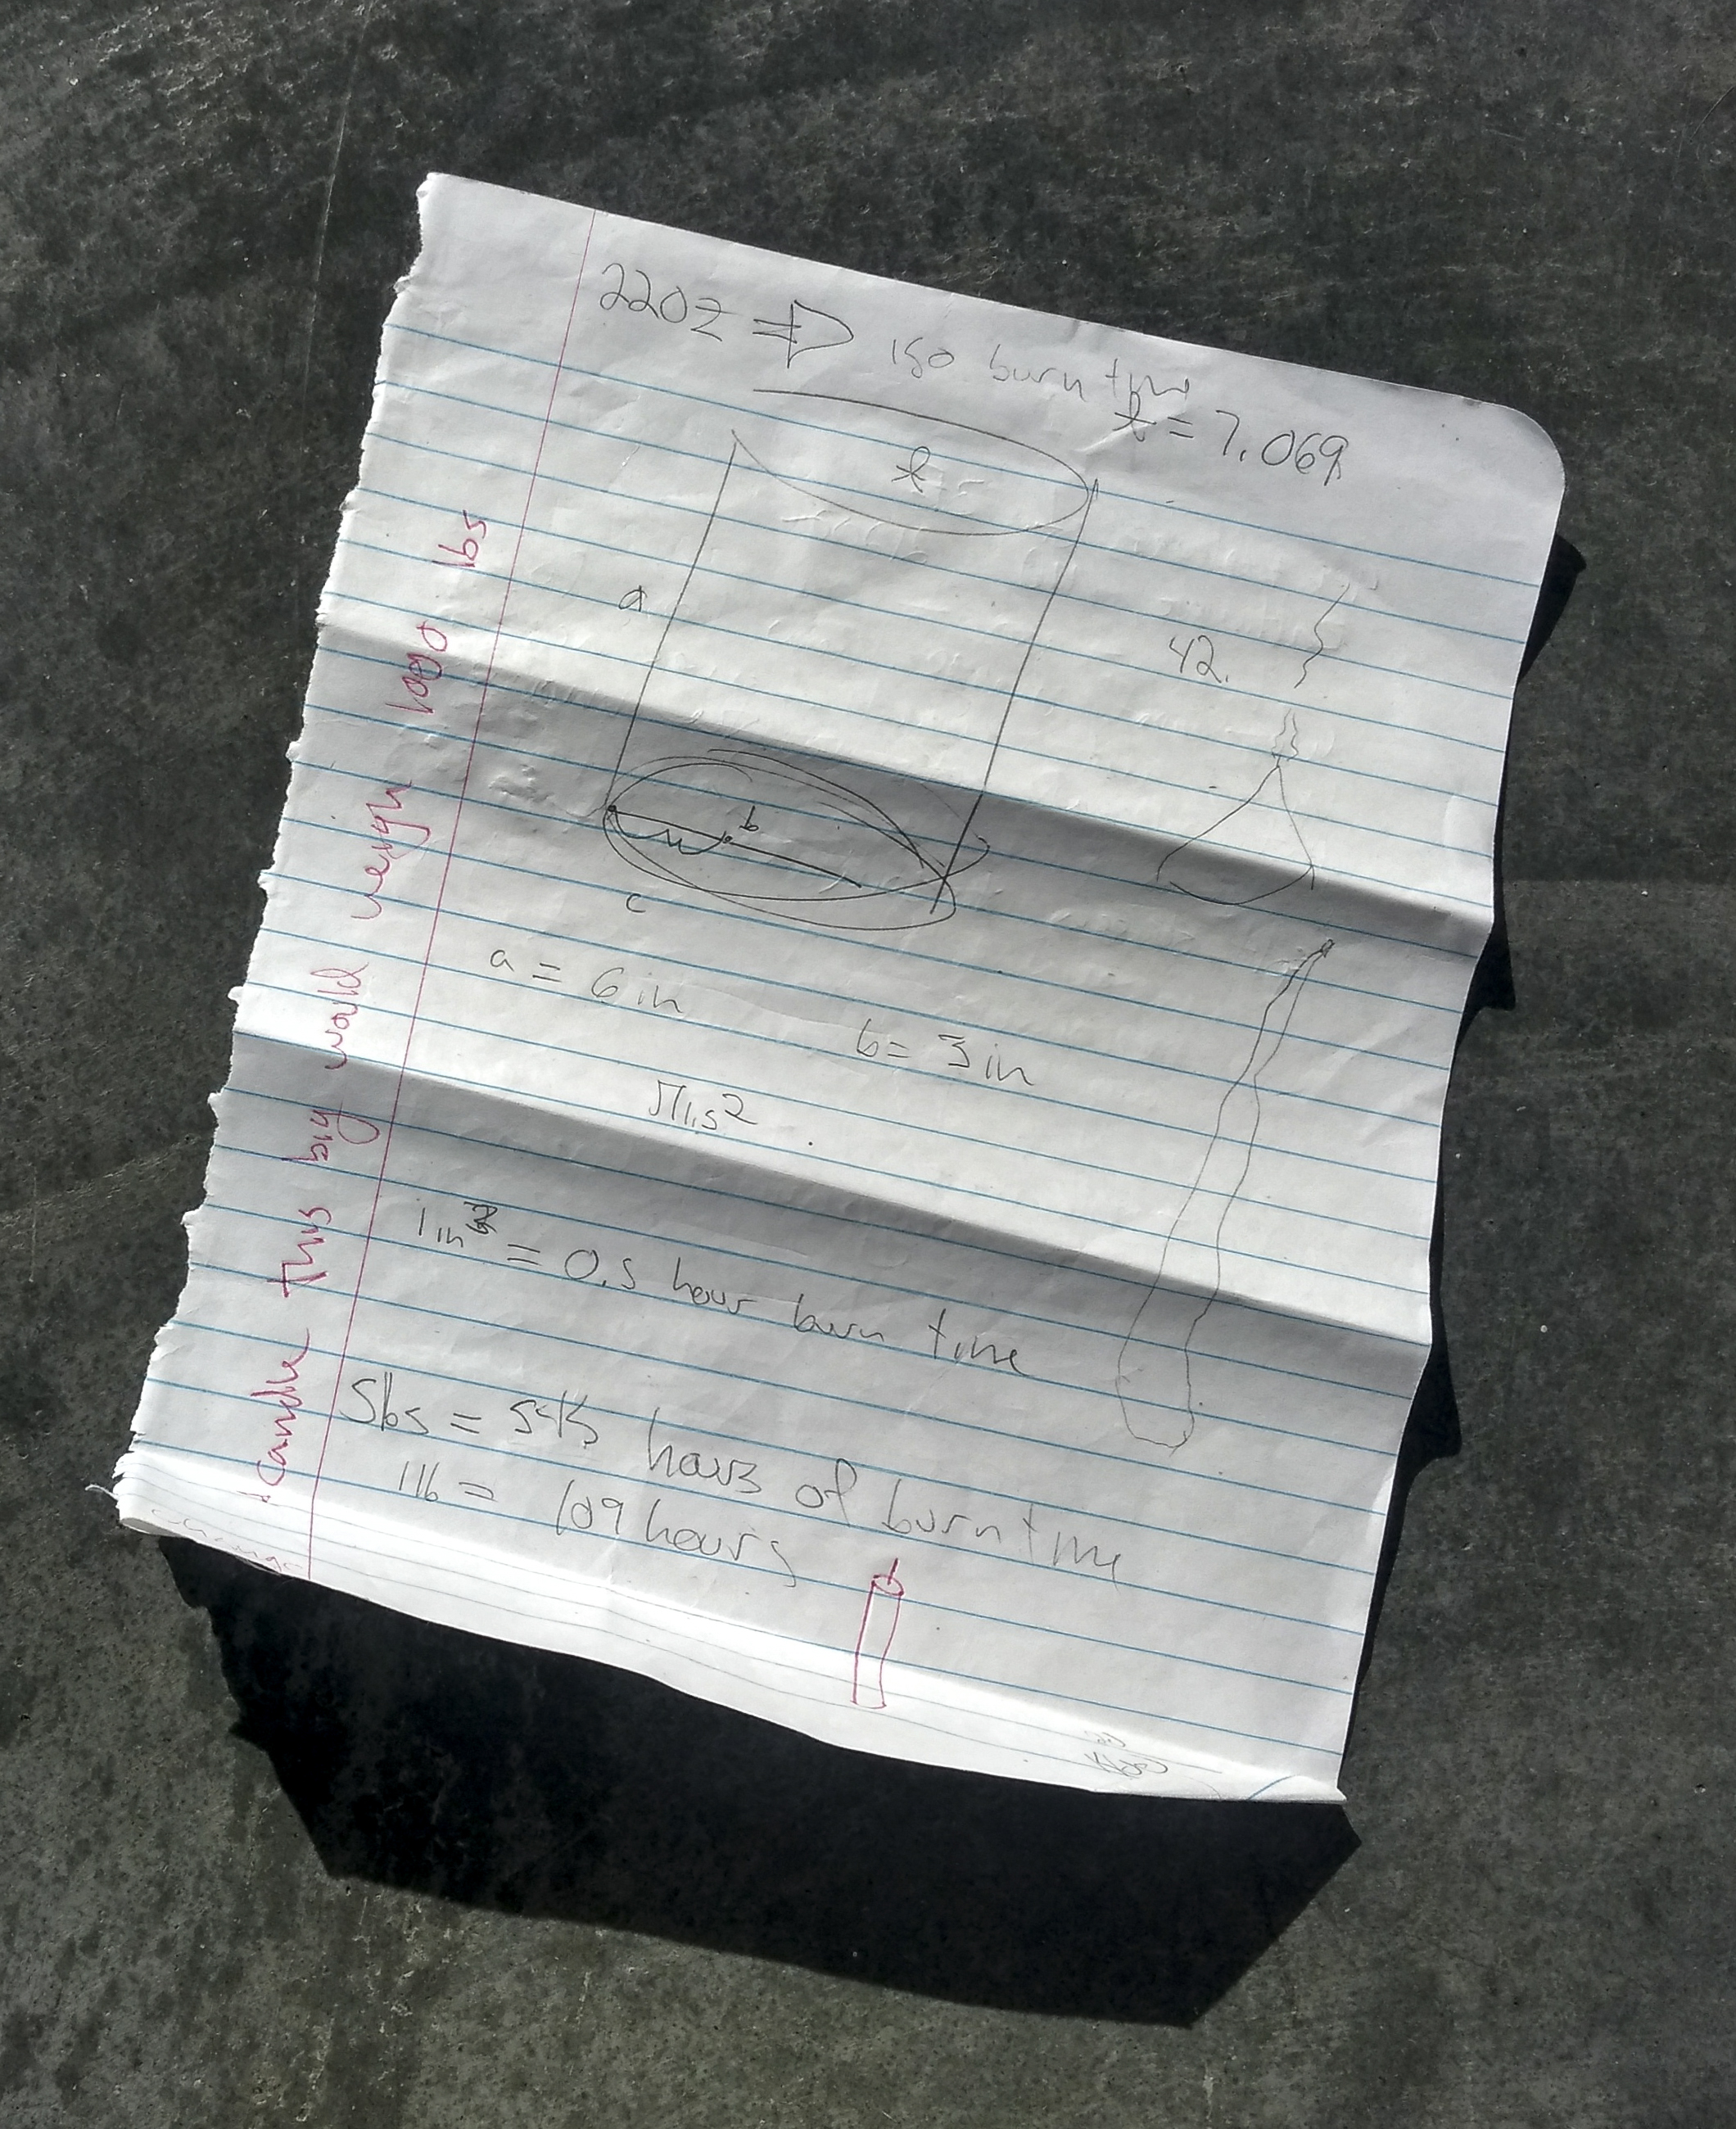 22oz ⇒ 150 burn time
t = 7.069
t
a
42.
b
c
a = 6in
b = 3in
π1.5²
1in = 0.5 hour burn time
5lbs = 545 hours of burn time
1lb = 109 hours
candle this big would weigh 1000 lbs